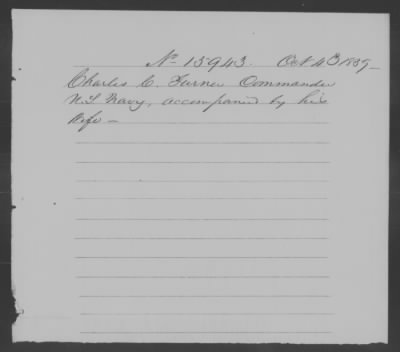 No 15943. Oct 4th 1859—
Charles C. Turner Commander
U.S. Navy, accompanied by his
Wife —